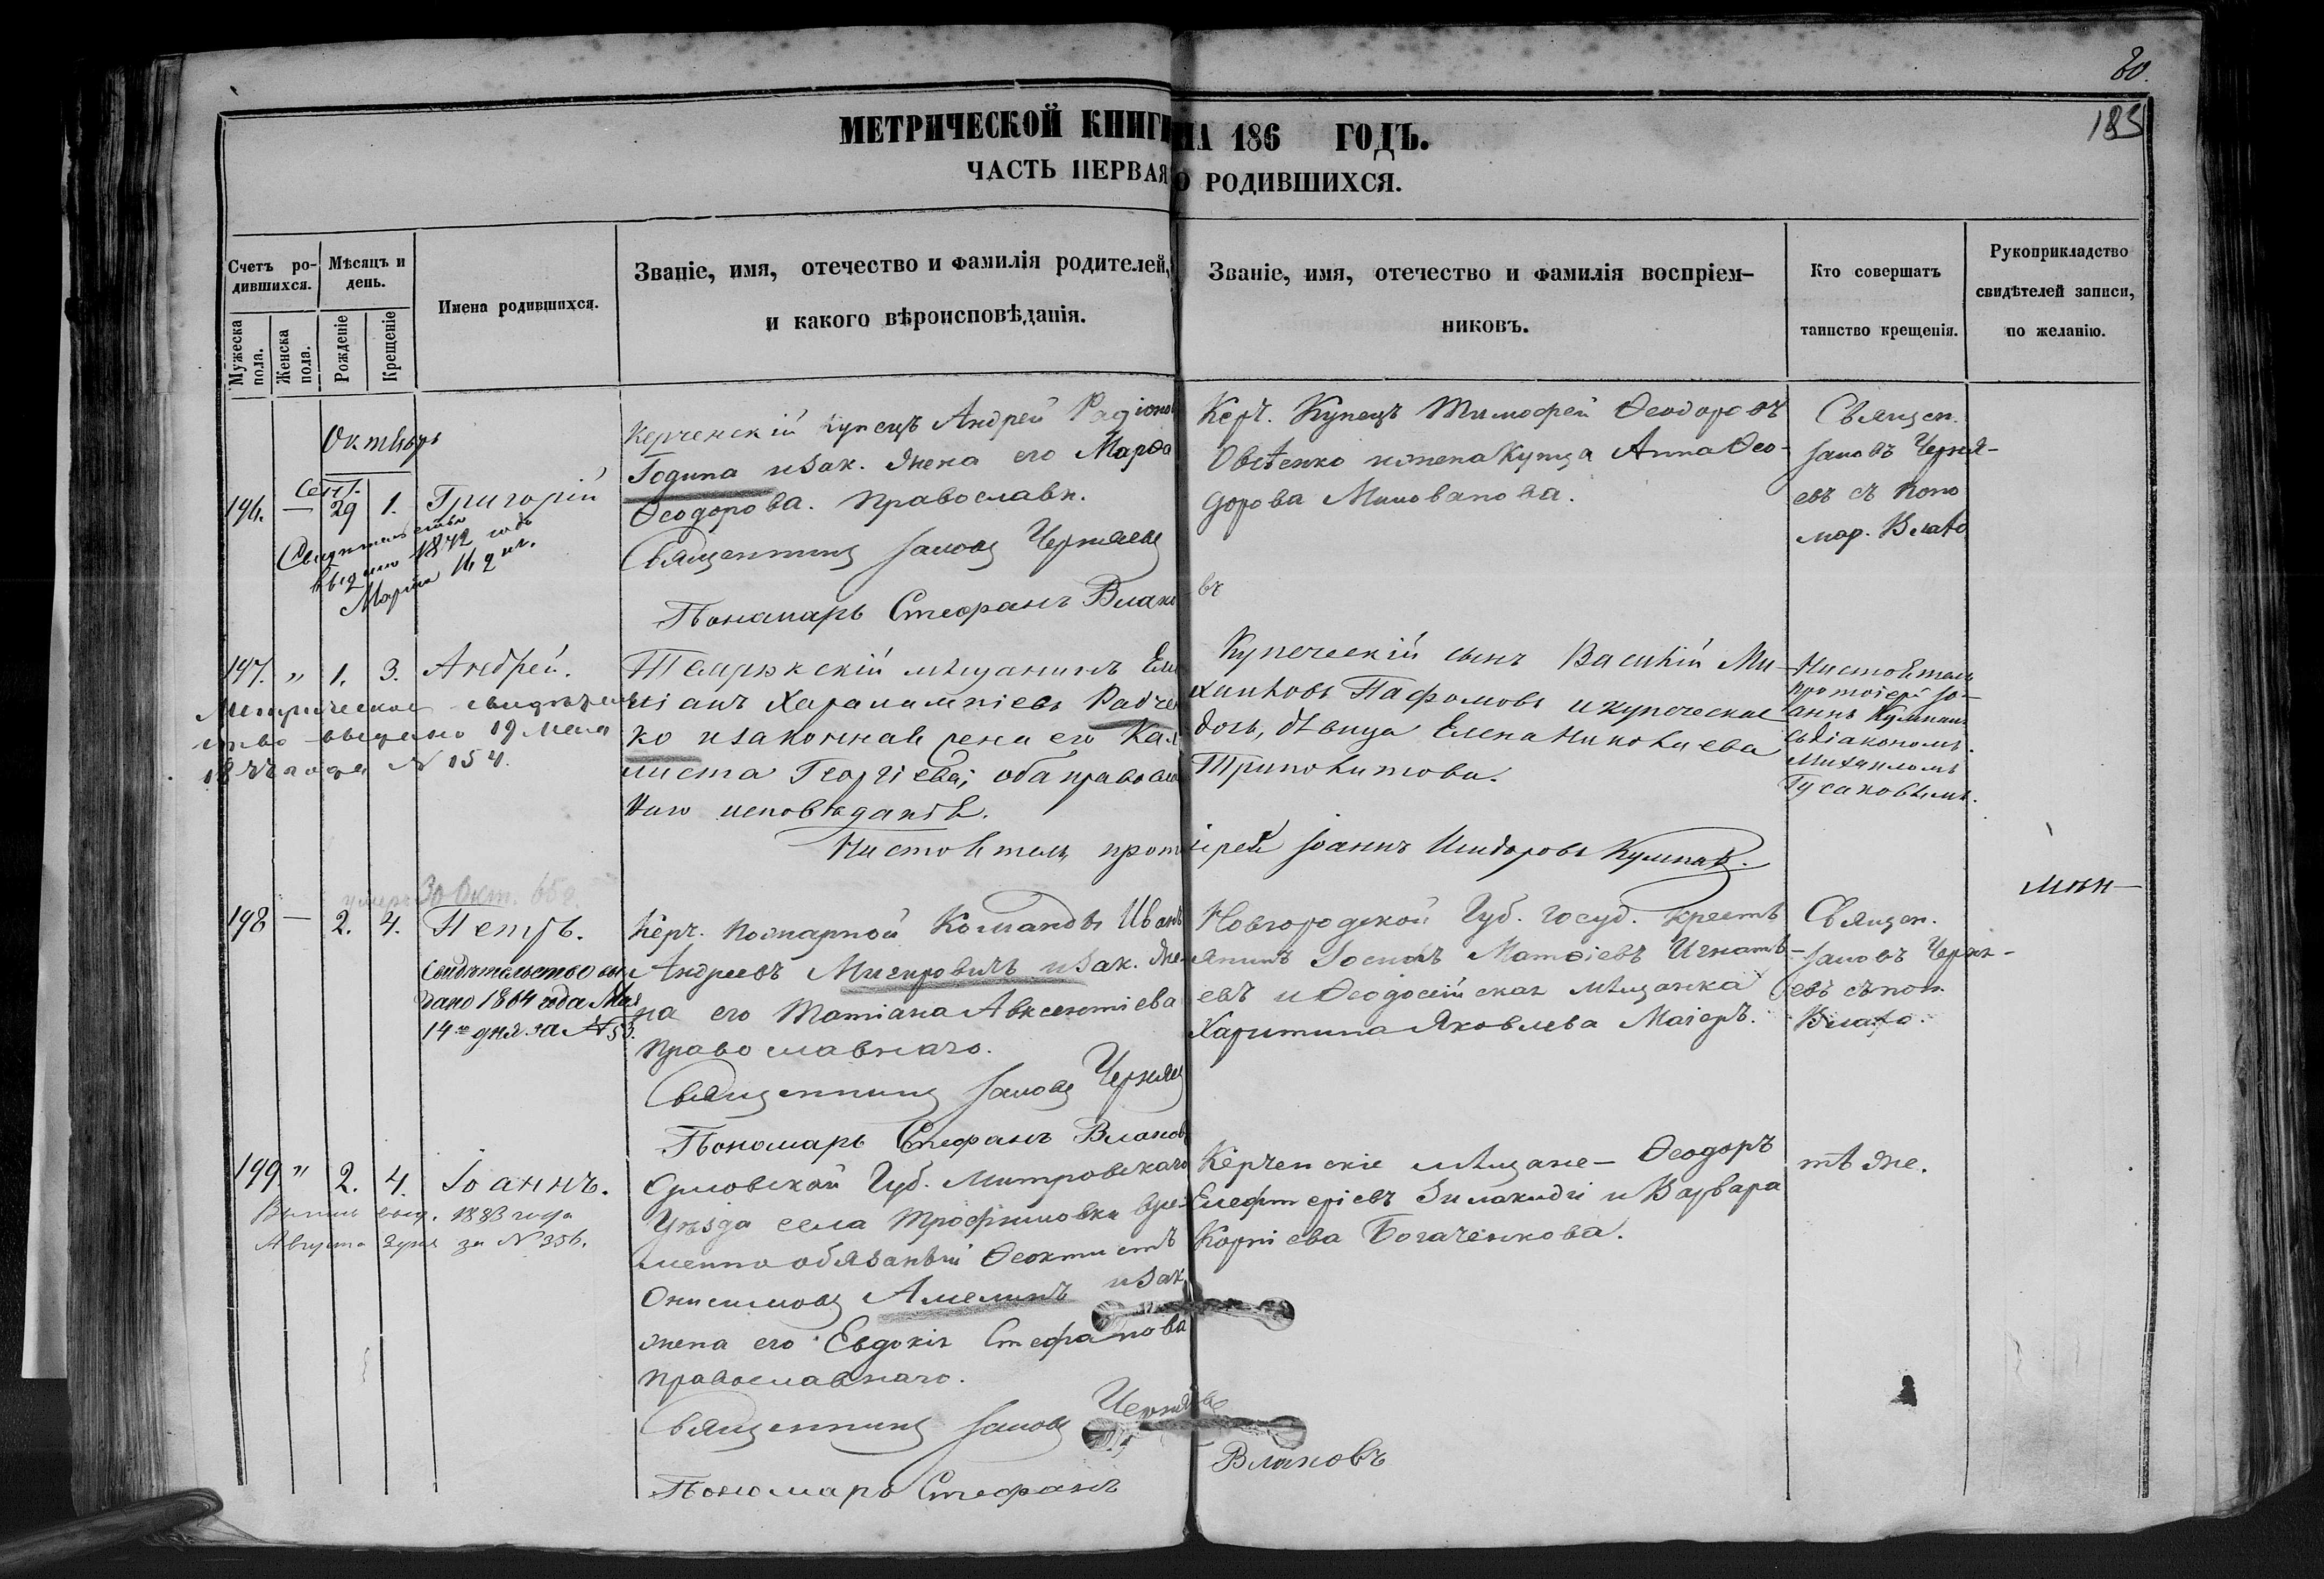 80.
185
МЕТРИЧЕСКОЙ КНИГИ НА 186 ГОДЪ.
ЧАСТЬ ПЕРВАЯ О РОДИВШИХСЯ.
Счетъ ро-
дившихся.
Мужеска пола.
Женска пола.
Мѣсяцъ и
день.
Рожденіе
Крещеніе
Имена родившихся.
Званіе, имя, отечество и фамилія родителей,
и какого вѣроисповѣданія.
Званіе, имя, отечество и фамилія воспріем-
никовъ.
Кто совершатъ
таинство крещенія.
Рукоприкладство
свидѣтелей записи,
по желанію.
Октябрь
196. — Сент. 29 1. Григорій
Свидѣтельство
выдано 1872 годъ
Марта 14 дня.
Керченскій купецъ Андрей Радіонов
Година изак. жена его Марѳа
Ѳеодорова. Православн.
Священникъ Іаковъ Черняевъ
Пономарь Стефанъ Влахо
въ
Керч. Купецъ Тимофей Ѳеодоровъ
Овсѣенко ижена Купца Анна Ѳео-
дорова Миловапова.
Священ.
Іаковъ Черня-
евъ съ Поно
мар. Влахо
197. „ 1. 3. Андрей.
Метрическое свидѣтель
ство выдано 19 Мая
1877 года N 154.
Темрюкскій мѣщанинъ Еми
ліанъ Харалампіевъ Радчен
ко изаконная жена его Кал
листа Георгіева; оба православ
наго исповѣданія.
Настоятель протоіерей Іоаннъ Исидоровъ Кумпанъ.
Купеческій сынъ Василій Ми-
хаиловъ Пафомовъ и купеческая
дочь, дѣвица Елена Николаева
Триполитова.
Настоятель
протоіерей Іо-
аннъ Кумпанъ
съ діакономъ
Михаиломъ
Гусаковымъ.
умеръ 30 Окт. 65 г.
198 — 2. 4. Петръ.
Свидѣтельство вы
дано 1864 года Мая
14го дня за N 53.
Керч. Пожарной Команды Иванъ
Андреевъ Мигировичъ изак. же
на его Татіана Авксентіева
Православнаго.
Священникъ Іаковъ Черняев
Пономарь Стефанъ Влахов
Новгородской Губ. Госуд. Крестъ
янинъ Іосифъ Матѳіевъ Игнать-
евъ и Ѳеодосійская мѣщанка
Харитина Яковлева Маіеръ.
Священ.
Іаковъ Черня-
евъ съ пон.
Влахо.
199 „ 2. 4. Іоаннъ.
выд. 1883 года
Августа 2 дня за N 356.
Орловской Губ. Митровскаго
Уѣзда села Трофимовки вре-
менно обязаный Ѳеоктистъ
Онисимовъ Амелинъ изак
жена его Евдокія Стефанова
Православнаго.
Священникъ Іаковъ Черняевъ
Пономарь Стефанъ Влаховъ
Керченскіе мѣщане — Ѳеодоръ
Елефтеріевъ и Варвара
Корніева Богаченкова.
тѣ же.